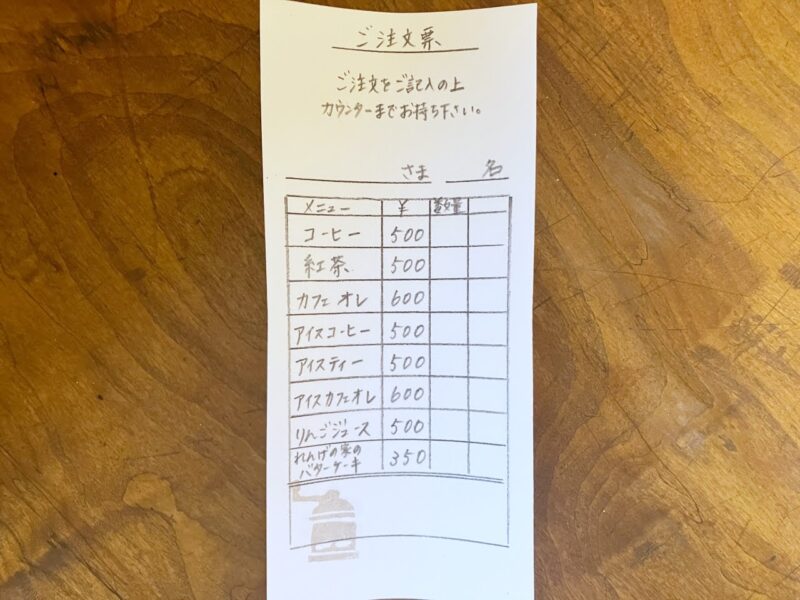 ご注文票
ご注文をご記入の上
カウンターまでお持ち下さい。
さま 名
メニュー ¥ 数量
コーヒー 500
紅茶 500
カフェオレ 600
アイスコーヒー 500
アイスティー 500
アイスカフェオレ 600
りんごジュース 500
れんげの家の
バターケーキ 350